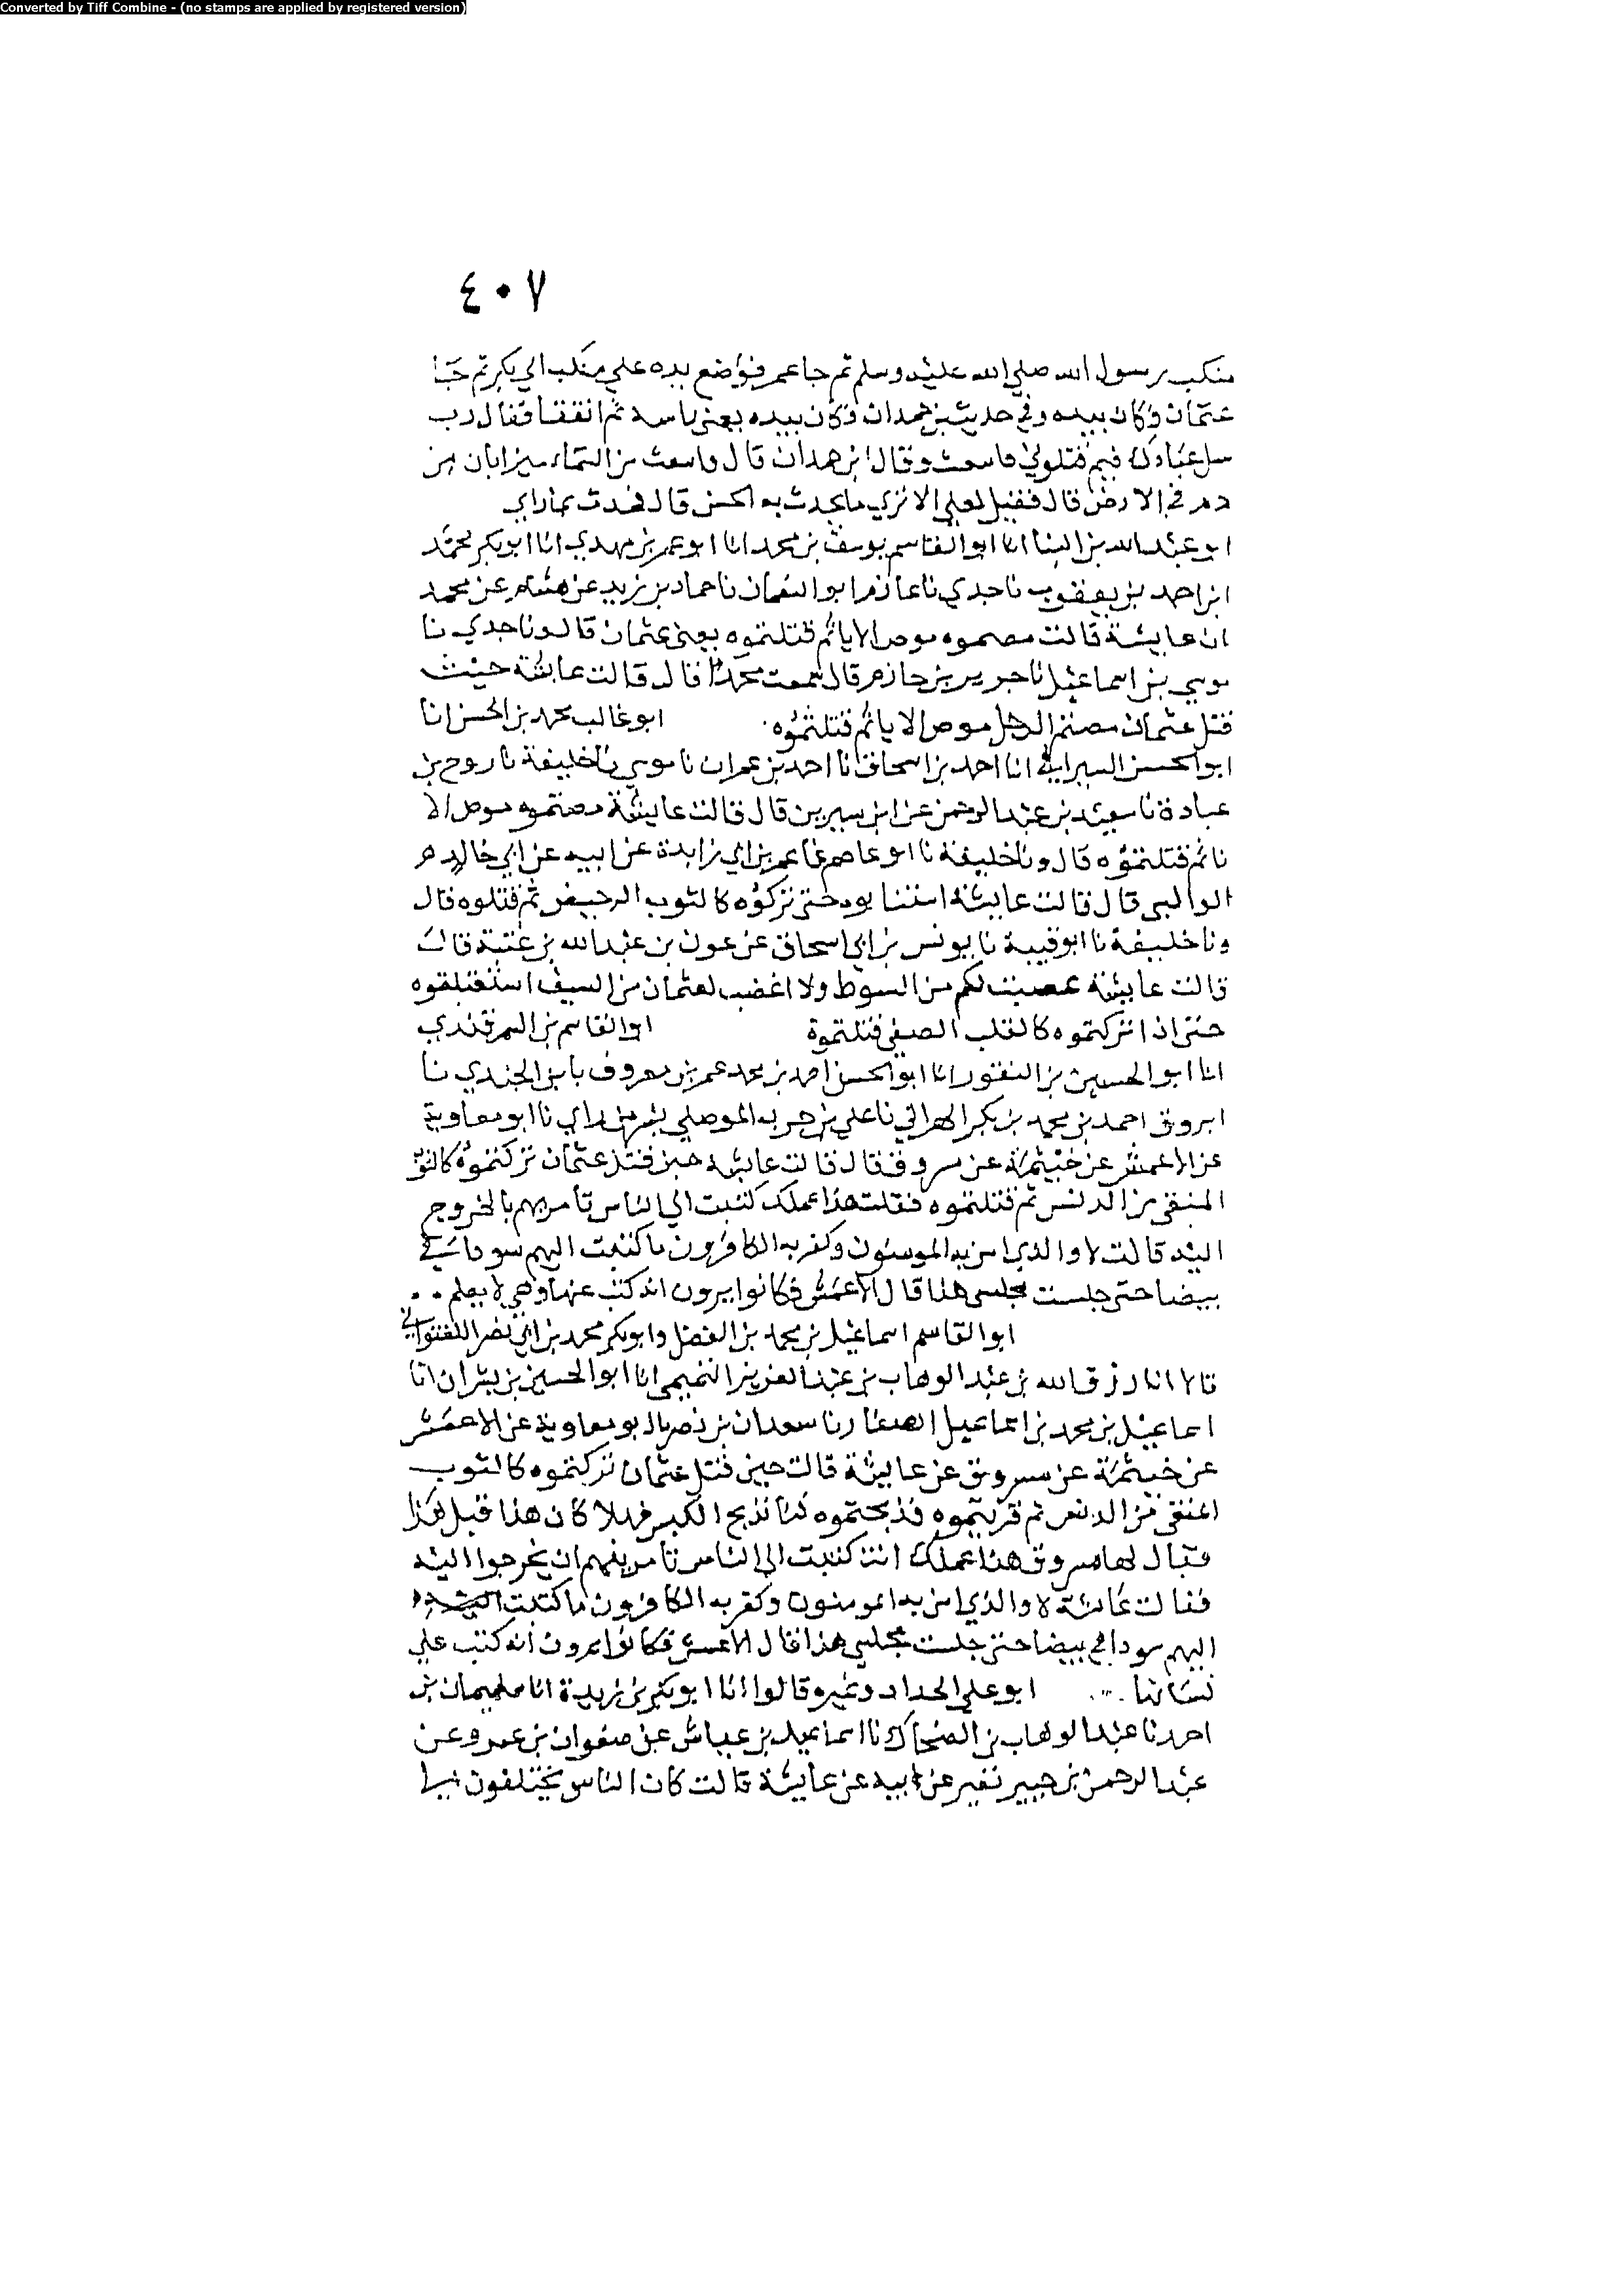 Converted by Tiff Combine - (no stamps are applied by registered version)
٤٠٧
منكب رسول الله صلي الله عليه وسلم ثم جا عمر فوضع يده علي منكب ابي بكر ثم جا
عثمان وكان بيده وفي حديث بن حمدان وكان بيده يعني راسه فقال رب
سل عبادك فيم قتلوني وقال ابن حمدان قال من السماء ميزابان من
دم في الارض قال فقيل لعلي الا تري ما يحدث به الحسن قال يحدث بما راي
ابو عبد الله بن البنا انا ابو القاسم يوسف بن محمد انا ابو عمر بن مهدي انا ابو بكر محمد
ابن احمد بن يعقوب نا جدي نا عازم ابو النعمان نا حماد بن زيد عن هشام عن محمد
ان عايشة قالت موص الاناثم قتلتموه يعني عثمان قال ونا جدي نا
موسي بن اسماعيل نا جرير بن حازم قال سمعت محمدا قال قالت عايشة حيث
قتل عثمان مصتم الرجل موص الاناثم قتلتموه ابو غالب محمد بن الحسن انا
ابو الحسن السيرافي انا احمد بن اسحاق نا احمد بن عمران نا موسي نا خليفة نا روح بن
عبادة نا سعيد بن عبد الرحمن عن ابن سيرين قال قالت عايشة مصتموه موص الا
ناثم قتلتموه قال ونا خليفة نا ابو عاصم نا عمر بن ابي زايدة عن ابيه عن ابي خالد
الوالبي قال قالت عايشة حتي تركوه كالثوب الرحيض ثم قتلوه قال
ونا خليفة نا ابو قتيبة نا يونس بن ابي اسحاق عن عون بن عبد الله بن عتبة قال
قالت عايشة غضبت لكم من السوط ولا اغضب لعثمان من السيف استعتبتموه
حتي اذا تركتموه كالقلب الصفي قتلتموه ابو القاسم بن السمرقندي
انا ابو الحسين بن النقور انا ابو الحسن احمد بن محمد عمر بن معروف بابن الجندي نا
ابو روق احمد بن محمد بن بكر الهزاني نا علي بن حرب الموصلي بسر من راي نا ابو معاوية
عن الاعمش عن خيثمة عن مسروق قال قالت عايشة حين قتل عثمان تركتموه كالثوب
المنقي من الدنس ثم قتلتموه فقلت هذا عملك كتبت الي الناس تامريهم بالخروج
اليه قالت لا والذي امن به المومنون وكفر به الكافرون ما كتبت اليهم سودا في
بيضا حتي جلست مجلسي هذا قال الاعمش فكانوا يرون انه كتب عنها وهي لا يعلم
ابو القاسم اسماعيل بن محمد بن الفضل وابو بكر محمد بن ابي نصر اللفتواني
قالا انا رزق الله بن عبد الوهاب بن عبد العزيز التميمي انا ابو الحسين بن بشران انا
اسماعيل بن محمد بن اسماعيل الصفار نا سعدان بن نصر نا ابو معاوية عن الاعمش
عن خيثمة عن مسروق عن عايشة قالت حين قتل عثمان تركتموه كالثوب
المنقي من الدنس ثم قربتموه فذبحتموه كما نذبح الكبش فهلا كان هذا قبل هذا
فقال لها مسروق هذا عملك انت كتبت الي الناس تامرينهم ان يخرجوا اليه
فقالت عايشة لا والذي امن به المومنون وكفر به الكافرون ما كتبت
اليهم سودا في بيضا حتي جلست مجلسي هذا قال الاعمش فكانوا يرون انه كتب علي
لسانها ابو علي الحداد وغيره قالوا انا ابو بكر بن ريذة انا سليمان بن
احمد نا عبد الوهاب بن الضحاك نا اسماعيل بن عياش عن صفوان بن عمرو عن
عبد الرحمن بن جبير نفير عن ابيه عن عايشة قالت كان الناس يختلفون